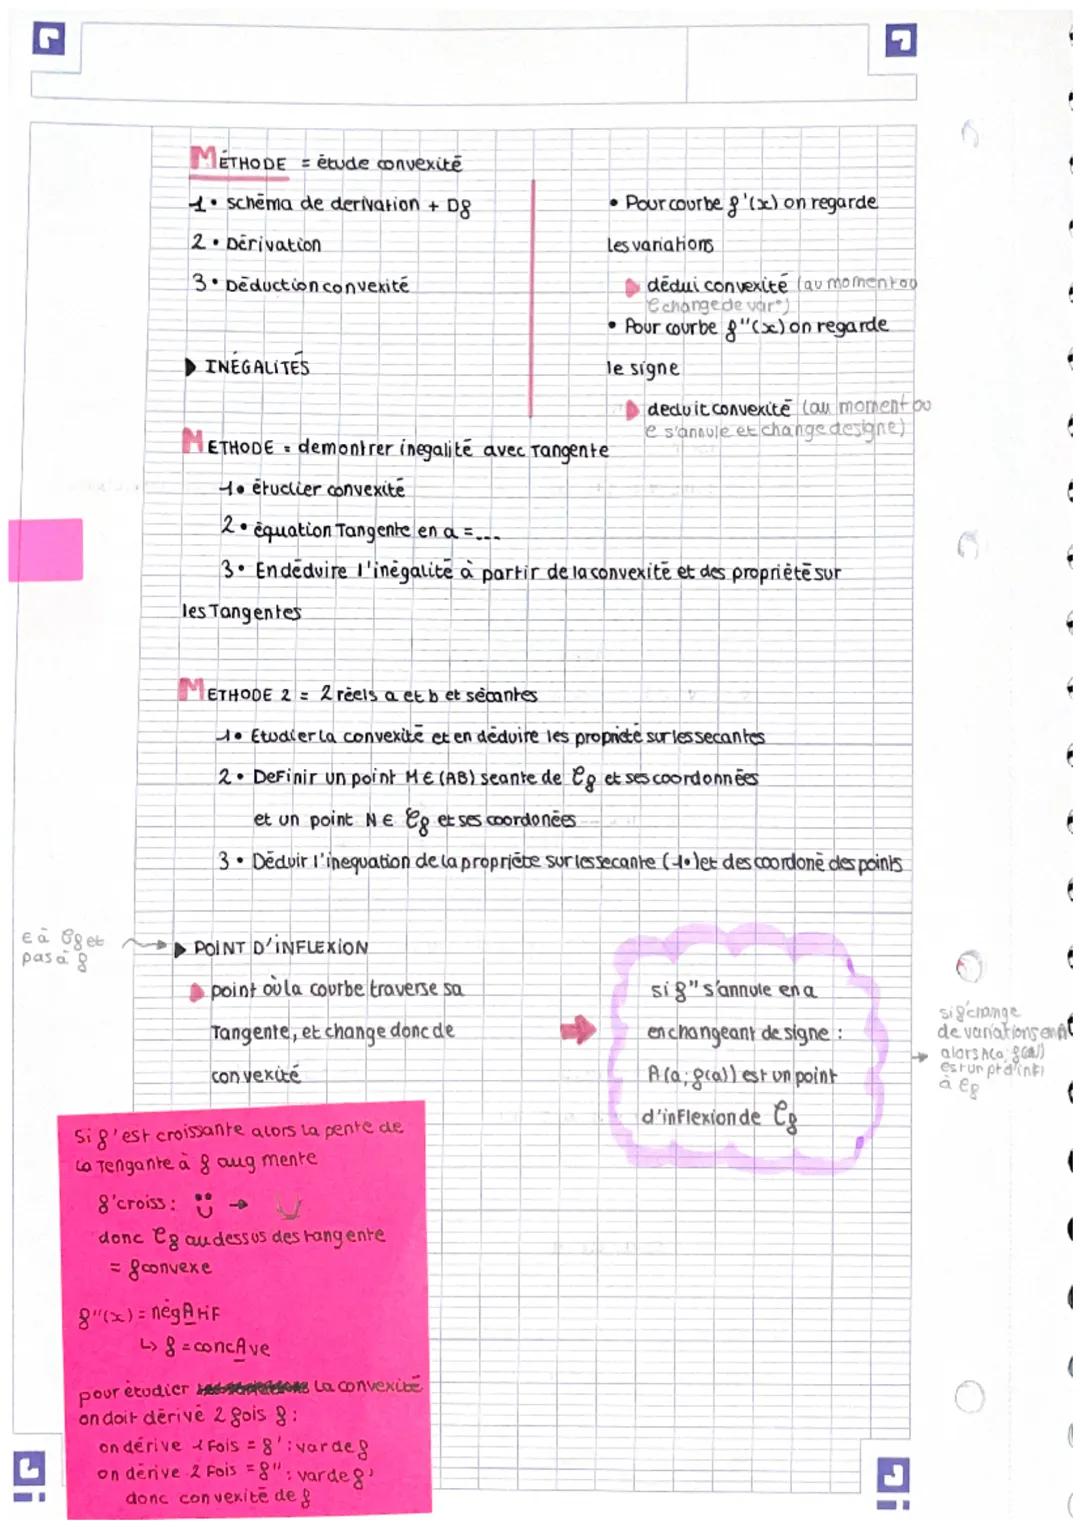 MÉTHODE = étude convexité
1• schéma de derivation + Df
2• Dérivation
3• Déduction convexité
▶ INÉGALITÉS
• Pour courbe f'(x) on regarde
les variations
▶ dédui convexité (au moment ou
C change de var°)
• Pour courbe f"(x) on regarde
le signe
▶ deduit convexité (au moment ou
e s'annule et change de signe)
METHODE = demontrer inegalité avec Tangente
1• étudier convexité
2• équation Tangente en a = ...
3• En déduire l'inégalité à partir de la convexité et des propriété sur
les Tangentes
METHODE 2 = 2 réels a et b et sécantes
1• Etudier la convexité et en déduire les propriété sur les secantes
2• DeFinir un point M ∈ (AB) seante de Cf et ses coordonnées
et un point N ∈ Cf et ses coordonées
3• Déduir l'inequation de la propriéte sur les secante (1•) et des coordoné des points
∈ à Cf et
pas à f
▶ POINT D'INFLEXION
▶ point où la courbe traverse sa
Tangente, et change donc de
convexité
si f" s'annule en a
en changeant de signe :
A(a; f(a)) est un point
d'inFlexion de Cf
si f' change
de variations en A
alors A(a; f(a))
est un pt d'infl
à Cf
Si f' est croissante alors la pente de
la Tengante à f augmente
f' croiss : → U
donc Cf au dessus des tangente
= f convexe
f"(x) = négAtiF
↳ f = concAve
pour étudier la convexité
on doit dérivé 2 fois f :
on dérive 1 Fois = f' : var de f
on dérive 2 Fois = f" : var de f'
donc convexité de f